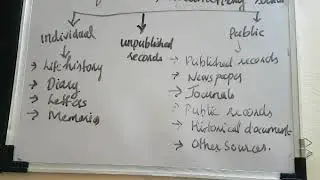 individual
unpublished
records
public
→ Life history
→ Diary
→ Letters
→ Memories
→ Published records
→ Newspaper
→ Journals
→ Public records
→ Historical document
→ Other Sources.